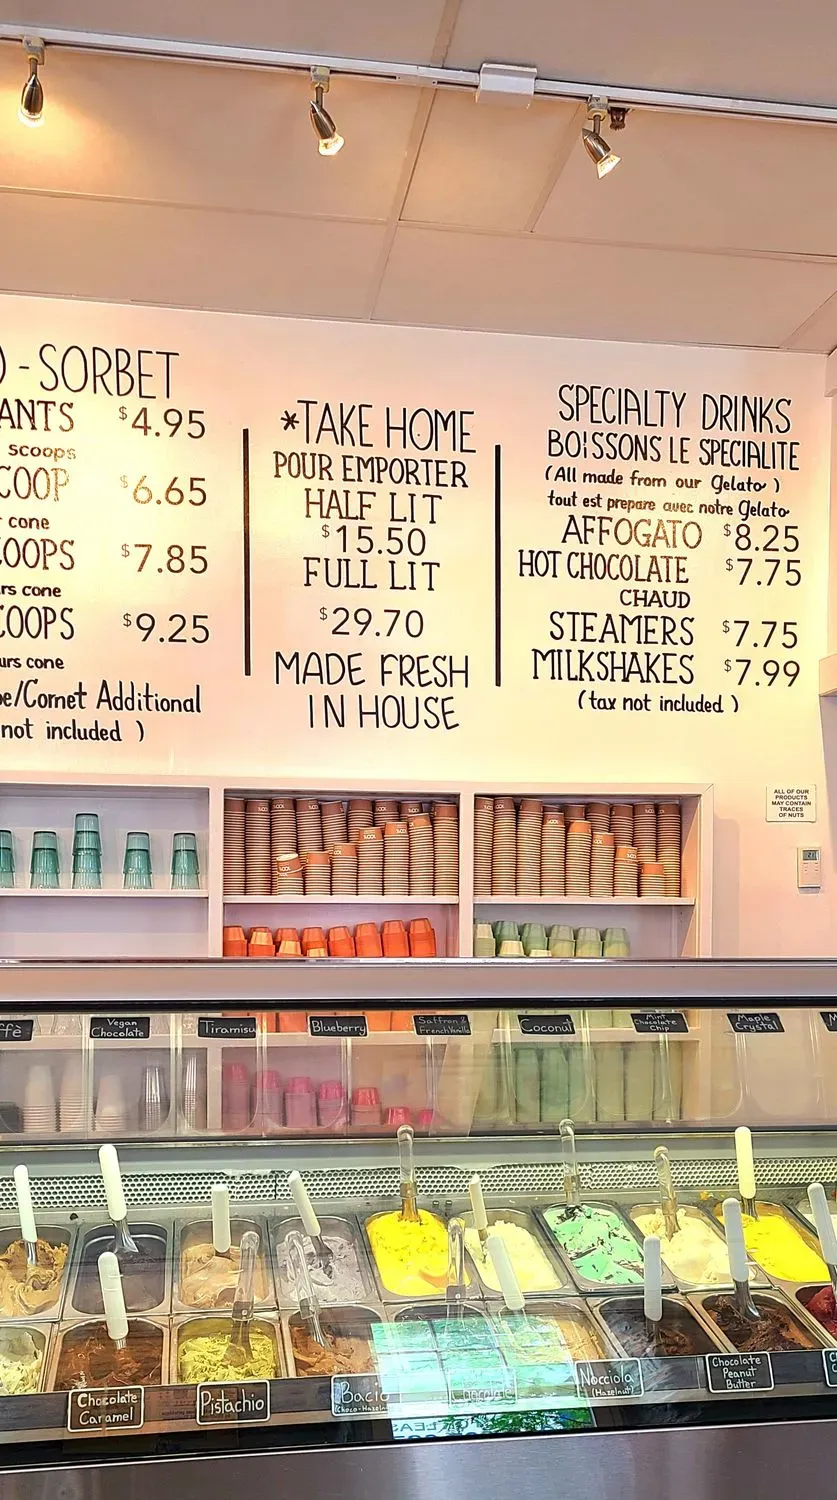 - SORBET
ANTS $4.95
scoops
COOP $6.65
cone
COOPS $7.85
rs cone
COOPS $9.25
urs cone
e/Cornet Additional
not included )
*TAKE HOME
POUR EMPORTER
HALF LIT
$15.50
FULL LIT
$29.70
MADE FRESH
IN HOUSE
SPECIALTY DRINKS
BOISSONS LE SPECIALITE
(All made from our Gelato )
tout est prepare avec notre Gelato
AFFOGATO $8.25
HOT CHOCOLATE $7.75
CHAUD
STEAMERS $7.75
MILKSHAKES $7.99
(tax not included )
ALL OF OUR
PRODUCTS
MAY CONTAIN
TRACES
OF NUTS
ffè
Vegan
Chocolate
Tiramisu
Blueberry
Saffron &
French Vanilla
Coconut
Mint
Chocolate
Chip
Maple
Crystal
M
Chocolate
Caramel
Pistachio
Bacio
(Choco-Hazelnut
Chocolate
Nocciola
(Hazelnut)
Chocolate
Peanut
Butter